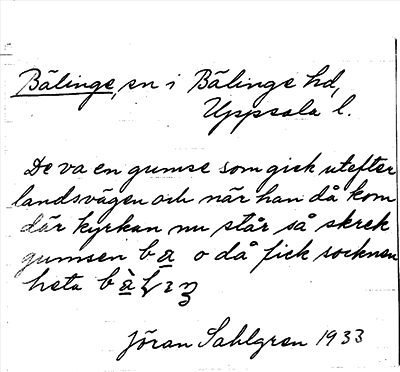 Bälinge, sn i Bälinge hd,
Uppsala l.
De va en gumse som gick utefter
landsvägen och när han då kom
där kyrkan nu står så skrek
gumsen b a o då fick socknen
heta
Jöran Sahlgren 1933